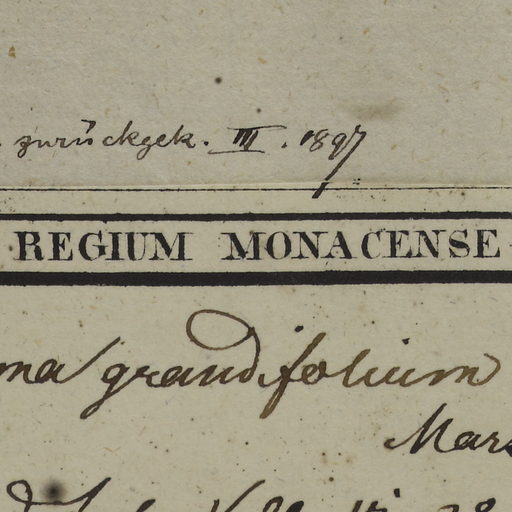 zurückgek. III. 1897
REGIUM MONACENSE
ma grandifolium
Mars